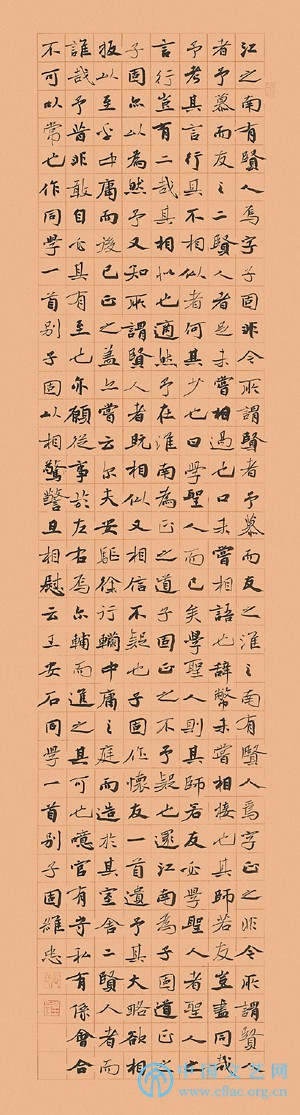 江之南有賢人焉字子固非今所謂賢者予慕而友之淮之南有賢人焉字正之非今所謂賢人
者予慕而友之二賢人者足未嘗相過也口未嘗相語也辭幣未嘗相接也其師若友豈盡同哉
予考其言行其不相似者何其少也曰學聖人而已矣學聖人則其師若友必學聖人者聖人之
言行豈有二哉其相似也適然予在淮南為正之道子固正之不予疑也還江南為子固道正之
子固亦以為然予又知所謂賢人者既相似又相信不疑也子固作懷友一首遺予其大略欲相
扳以至乎中庸而後已正之蓋亦嘗云尔夫安驅徐行轥中庸之庭而造於其室舍二賢人者而
誰哉予昔非敢自必其有至也亦願從事於左右焉尔輔而進之其可也噫官有守私有係會合
不可以常也作同學一首別子固以相驚警且相慰云王安石同學一首別子固忠
中国文艺网
www.cflac.org.cn